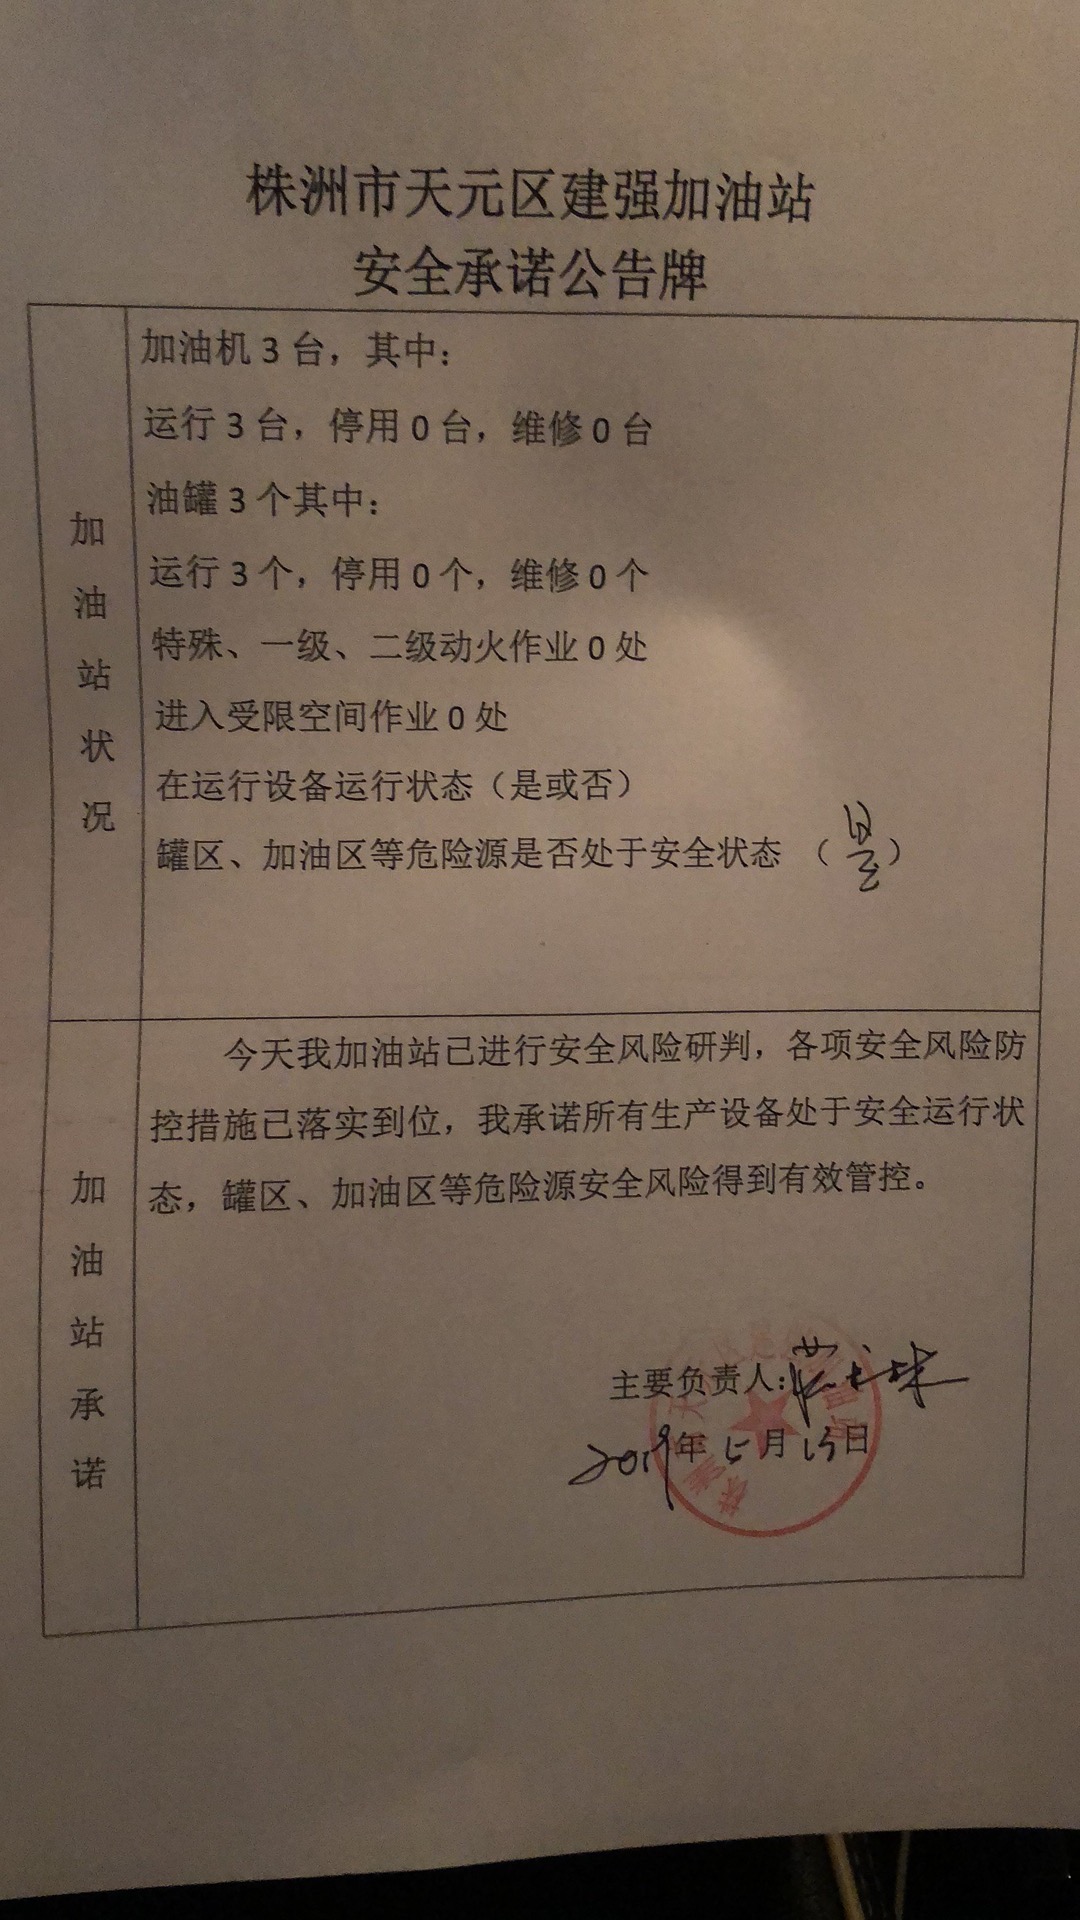 株洲市天元区建强加油站
安全承诺公告牌
加油站状况
加油机 3 台，其中：
运行 3 台，停用 0 台，维修 0 台
油罐 3 个其中：
运行 3 个，停用 0 个，维修 0 个
特殊、一级、二级动火作业 0 处
进入受限空间作业 0 处
在运行设备运行状态（是或否）
罐区、加油区等危险源是否处于安全状态 （是）
加油站承诺
今天我加油站已进行安全风险研判，各项安全风险防
控措施已落实到位，我承诺所有生产设备处于安全运行状
态，罐区、加油区等危险源安全风险得到有效管控。
主要负责人：
2019年 5月 日